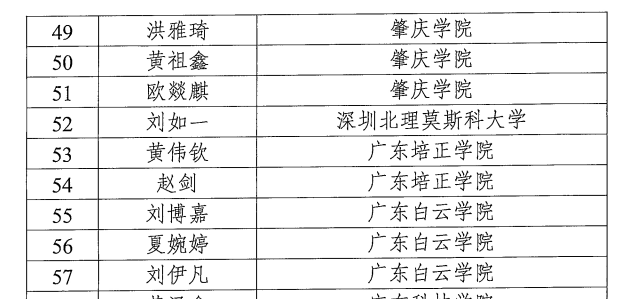 49 洪雅琦 肇庆学院
50 黄祖鑫 肇庆学院
51 欧燚麒 肇庆学院
52 刘如一 深圳北理莫斯科大学
53 黄伟钦 广东培正学院
54 赵剑 广东培正学院
55 刘博嘉 广东白云学院
56 夏婉婷 广东白云学院
57 刘伊凡 广东白云学院